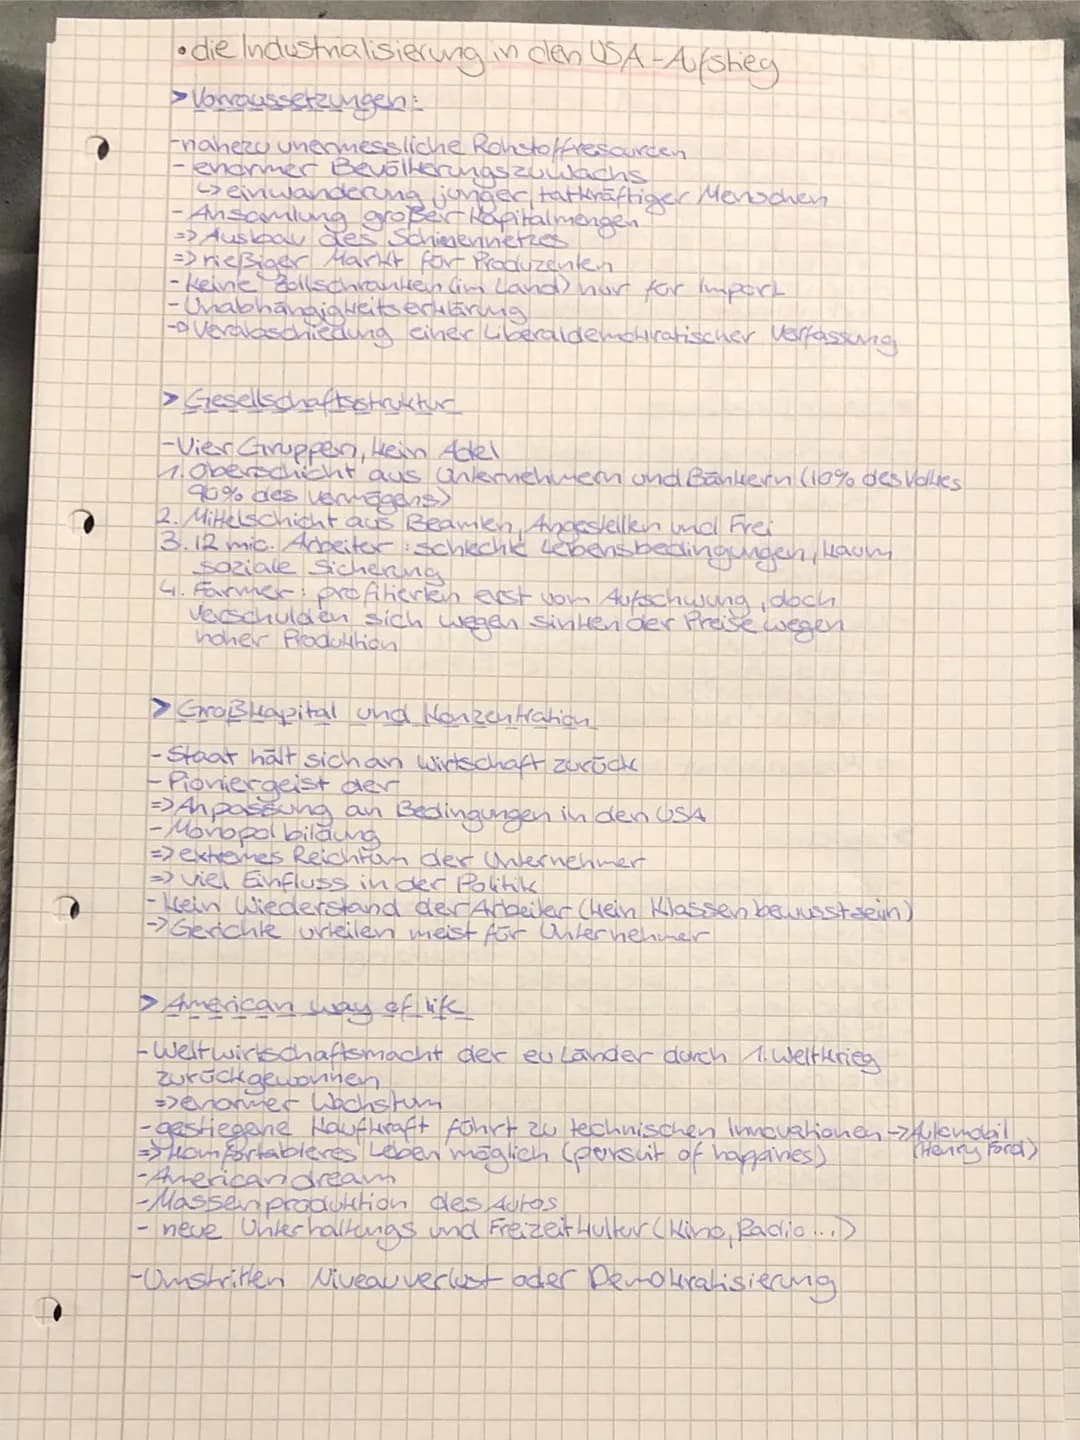 • die Industrialisierung in den USA - Aufstieg
> Vorraussetzungen:
- nahezu unermessliche Rohstoffresourcen
- enormer Bevölkerungszuwachs
↳ einwanderung junger, tatkräftiger Menschen
- Ansamlung großer Kapitalmengen
=> Ausbau des Schienennetzes
=> rießiger Markt für Produzenten
- keine Zollschranken (im Land) nur für Import
- Unabhängigkeitserklärung
-> Verabschiedung einer Liberaldemokratischer Verfassung
> Gesellschaftsstruktur
- Vier Gruppen, kein Adel
1. Oberschicht aus Unternehmern und Bänkern (10% des Volkes
90% des Vermögens)
2. Mittelschicht aus Beamten, Angestellten und Frei
3. 12 mio. Arbeiter : schlechte Lebensbedingungen, kaum
soziale Sicherung
4. Farmer : profitierten erst vom Aufschwung, doch
verschulden sich wegen sinkender Preise wegen
hoher Produktion
> Großkapital und Konzentration
- Staat hält sich an Wirtschaft zurück
- Pioniergeist der
=> Anpassung an Bedingungen in den USA
- Monopolbildung
=> extremes Reichtum der Unternehmer
=> viel Einfluss in der Politik
- kein Wiederstand der Arbeiter (kein Klassenbewusstsein)
-> Gerichte urteilen meist für Unternehmer
> American way of life
- Weltwirtschaftsmacht der eu Länder durch 1. Weltkrieg
zurückgewonnen
=> enormer Wachstum
- gestiegene Kaufkraft führt zu technischen Innovationen -> Automobil
(Henry Ford)
=> Komfortableres Leben möglich (persuit of happines)
- American dream
- Massenproduktion des Autos
- neue Unterhaltungs und Freizeitkultur (Kino, Radio...)
- Umstritten Niveauverlust oder Demokratisierung